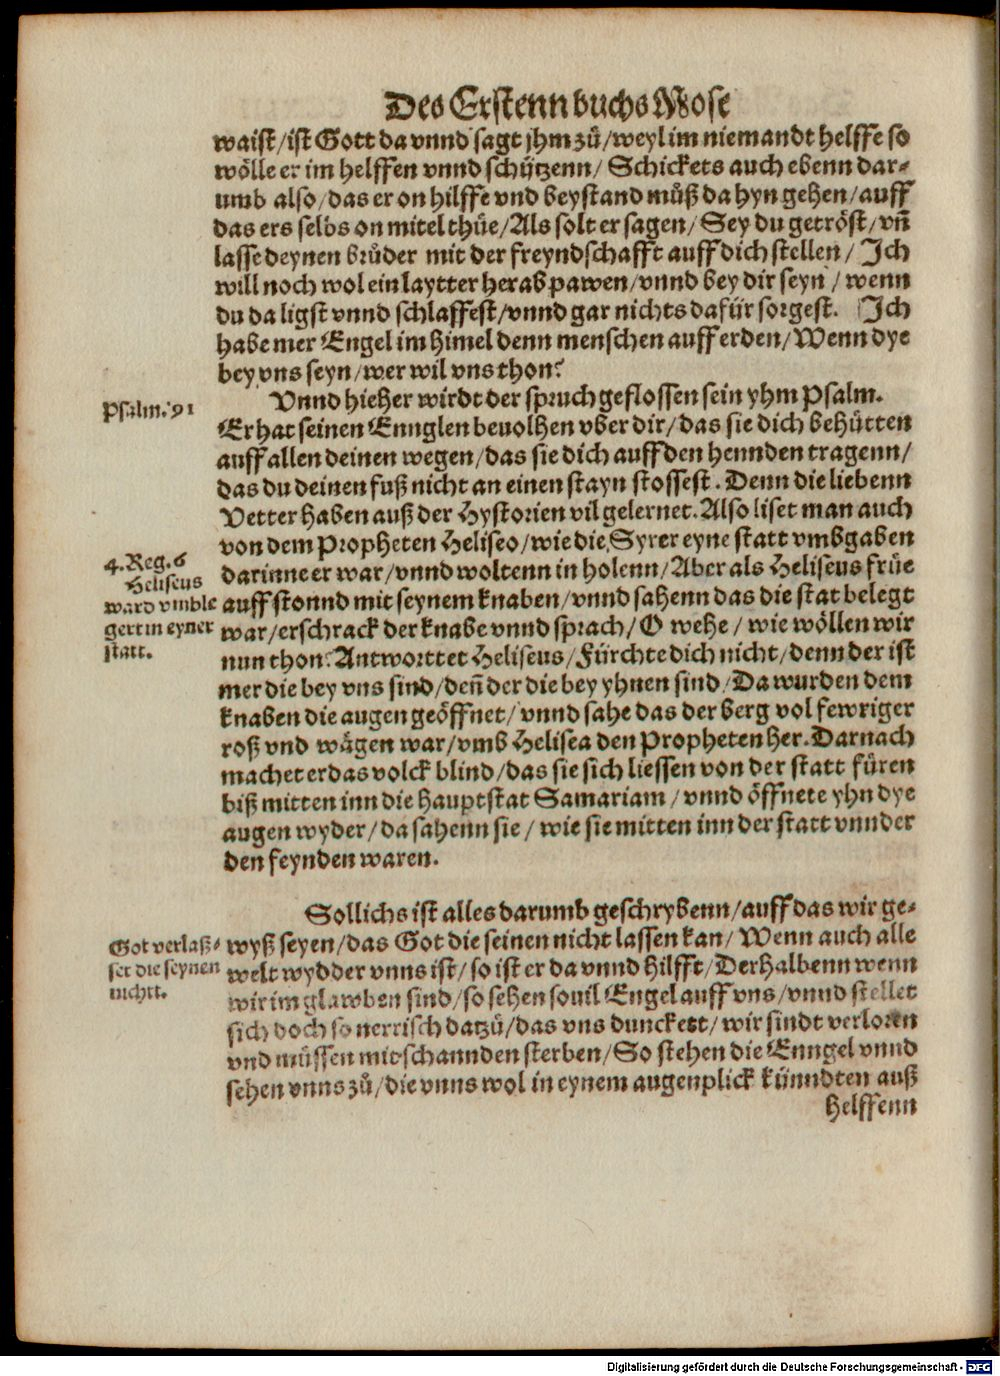 Des Erstenn buchs Mose
waist/ist Gott da vnnd sagt jhm zů/weyl im niemandt helffe so
wölle er im helffen vnnd schützenn/ Schickets auch ebenn dar-
umb also/das er on hilffe vnd beystand můß da hyn gehen/auff
das ers selbs on mitel thüe/Als solt er sagen/ Sey du getröst/vñ
lasse deynen brůder mit der freyndschafft auff dich stellen/ Ich
will noch wol ein laytter herab pawen/vnnd bey dir seyn/ wenn
du da ligst vnnd schlaffest/vnnd gar nichts dafür sorgest. Ich
habe mer Engel im himel denn menschen auff erden/Wenn dye
bey vns seyn/wer wil vns thon?
Psalm. 91
Vnnd hieher wirdt der spruch geflossen sein yhm Psalm.
Er hat seinen Ennglen beuolhen vber dir/das sie dich behütten
auff allen deinen wegen/das sie dich auff den hennden tragenn/
das du deinen fuß nicht an einen stayn stossest. Denn die liebenn
Vetter haben auß der Hystorien vil gelernet. Also liset man auch
von dem Propheten Heliseo/wie die Syrer eyne statt vmbgaben
4. Reg. 6
Heliseus
ward vmble
gert in eyner
statt.
darinne er war/vnnd woltenn in holenn/Aber als Heliseus früe
auff stonnd mit seynem knaben/vnnd sahenn das die stat belegt
war/erschrack der knabe vnnd sprach/O wehe/ wie wöllen wir
nun thon? Antworttet Heliseus/Fürchte dich nicht/denn der ist
mer die bey vns sind/deñ der die bey yhnen sind/Da wurden dem
knaben die augen geöffnet/ vnnd sahe das der berg vol fewriger
roß vnd wägen war/vmb Helisea den Propheten her. Darnach
machet er das volck blind/das sie sich liessen von der statt füren
biß mitten inn die hauptstat Samariam/vnnd öffnete yhn dye
augen wyder/da sahenn sie/ wie sie mitten inn der statt vnnder
den feynden waren.
Sollichs ist alles darumb geschrybenn/auff das wir ge-
Got verlaß-
set die seynen
nichtt.
wyß seyen/das Got die seinen nicht lassen kan/ Wenn auch alle
welt wydder vnns ist/so ist er da vnnd hilfft/Derhalbenn wenn
wir im glawben sind/so sehen souil Engel auff vns/vnnd stellet
sich doch so nerrisch datzů/das vns dunckett/wir sindt verloren
vnd müssen mit schannden sterben/So stehen die Enngel vnnd
sehen vnns zů/die vnns wol in eynem augenplick künndten auß
helffenn
Digitalisierung gefördert durch die Deutsche Forschungsgemeinschaft - DFG